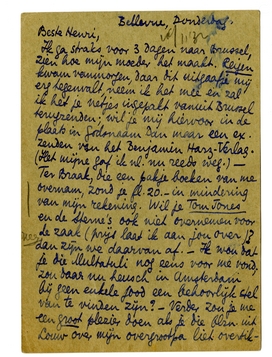 Bellevue, Donderdag.
Beste Henri,
Ik ga straks voor 3 dagen naar Brussel,
zien hoe mijn moeder het maakt. Reizen
kwam vanmorgen; daar dit uitgaafje mij
erg tegenvalt, neem ik het mee en zal
ik het je netjes ingepakt vanuit Brussel
terugzenden; wil je mij hiervoor in de
plaats in godsnaam dan maar een ex.
zenden van het Benjamin Harz-Verlag.
(Het mijne gaf ik nl. nu reeds weg.) —
Ter Braak, die een pakje boeken van me
overnam, zond je fl. 20.- in mindering
van mijn rekening. Wil je Tom Jones
en de Sterne's ook niet overnemen voor
de zaak (prijs laat ik aan jou over)?
dan zijn we daarvan af. — Ik wou dat
je die Multatuli nog eens voor me vond.
zou daar nu heusch in Amsterdam
bij geen enkele jood een behoorlijk stel
van te vinden zijn? — Verder zou je me
een groot plezier doen als je die blzn. uit
Couw over mijn overgrootpa liet